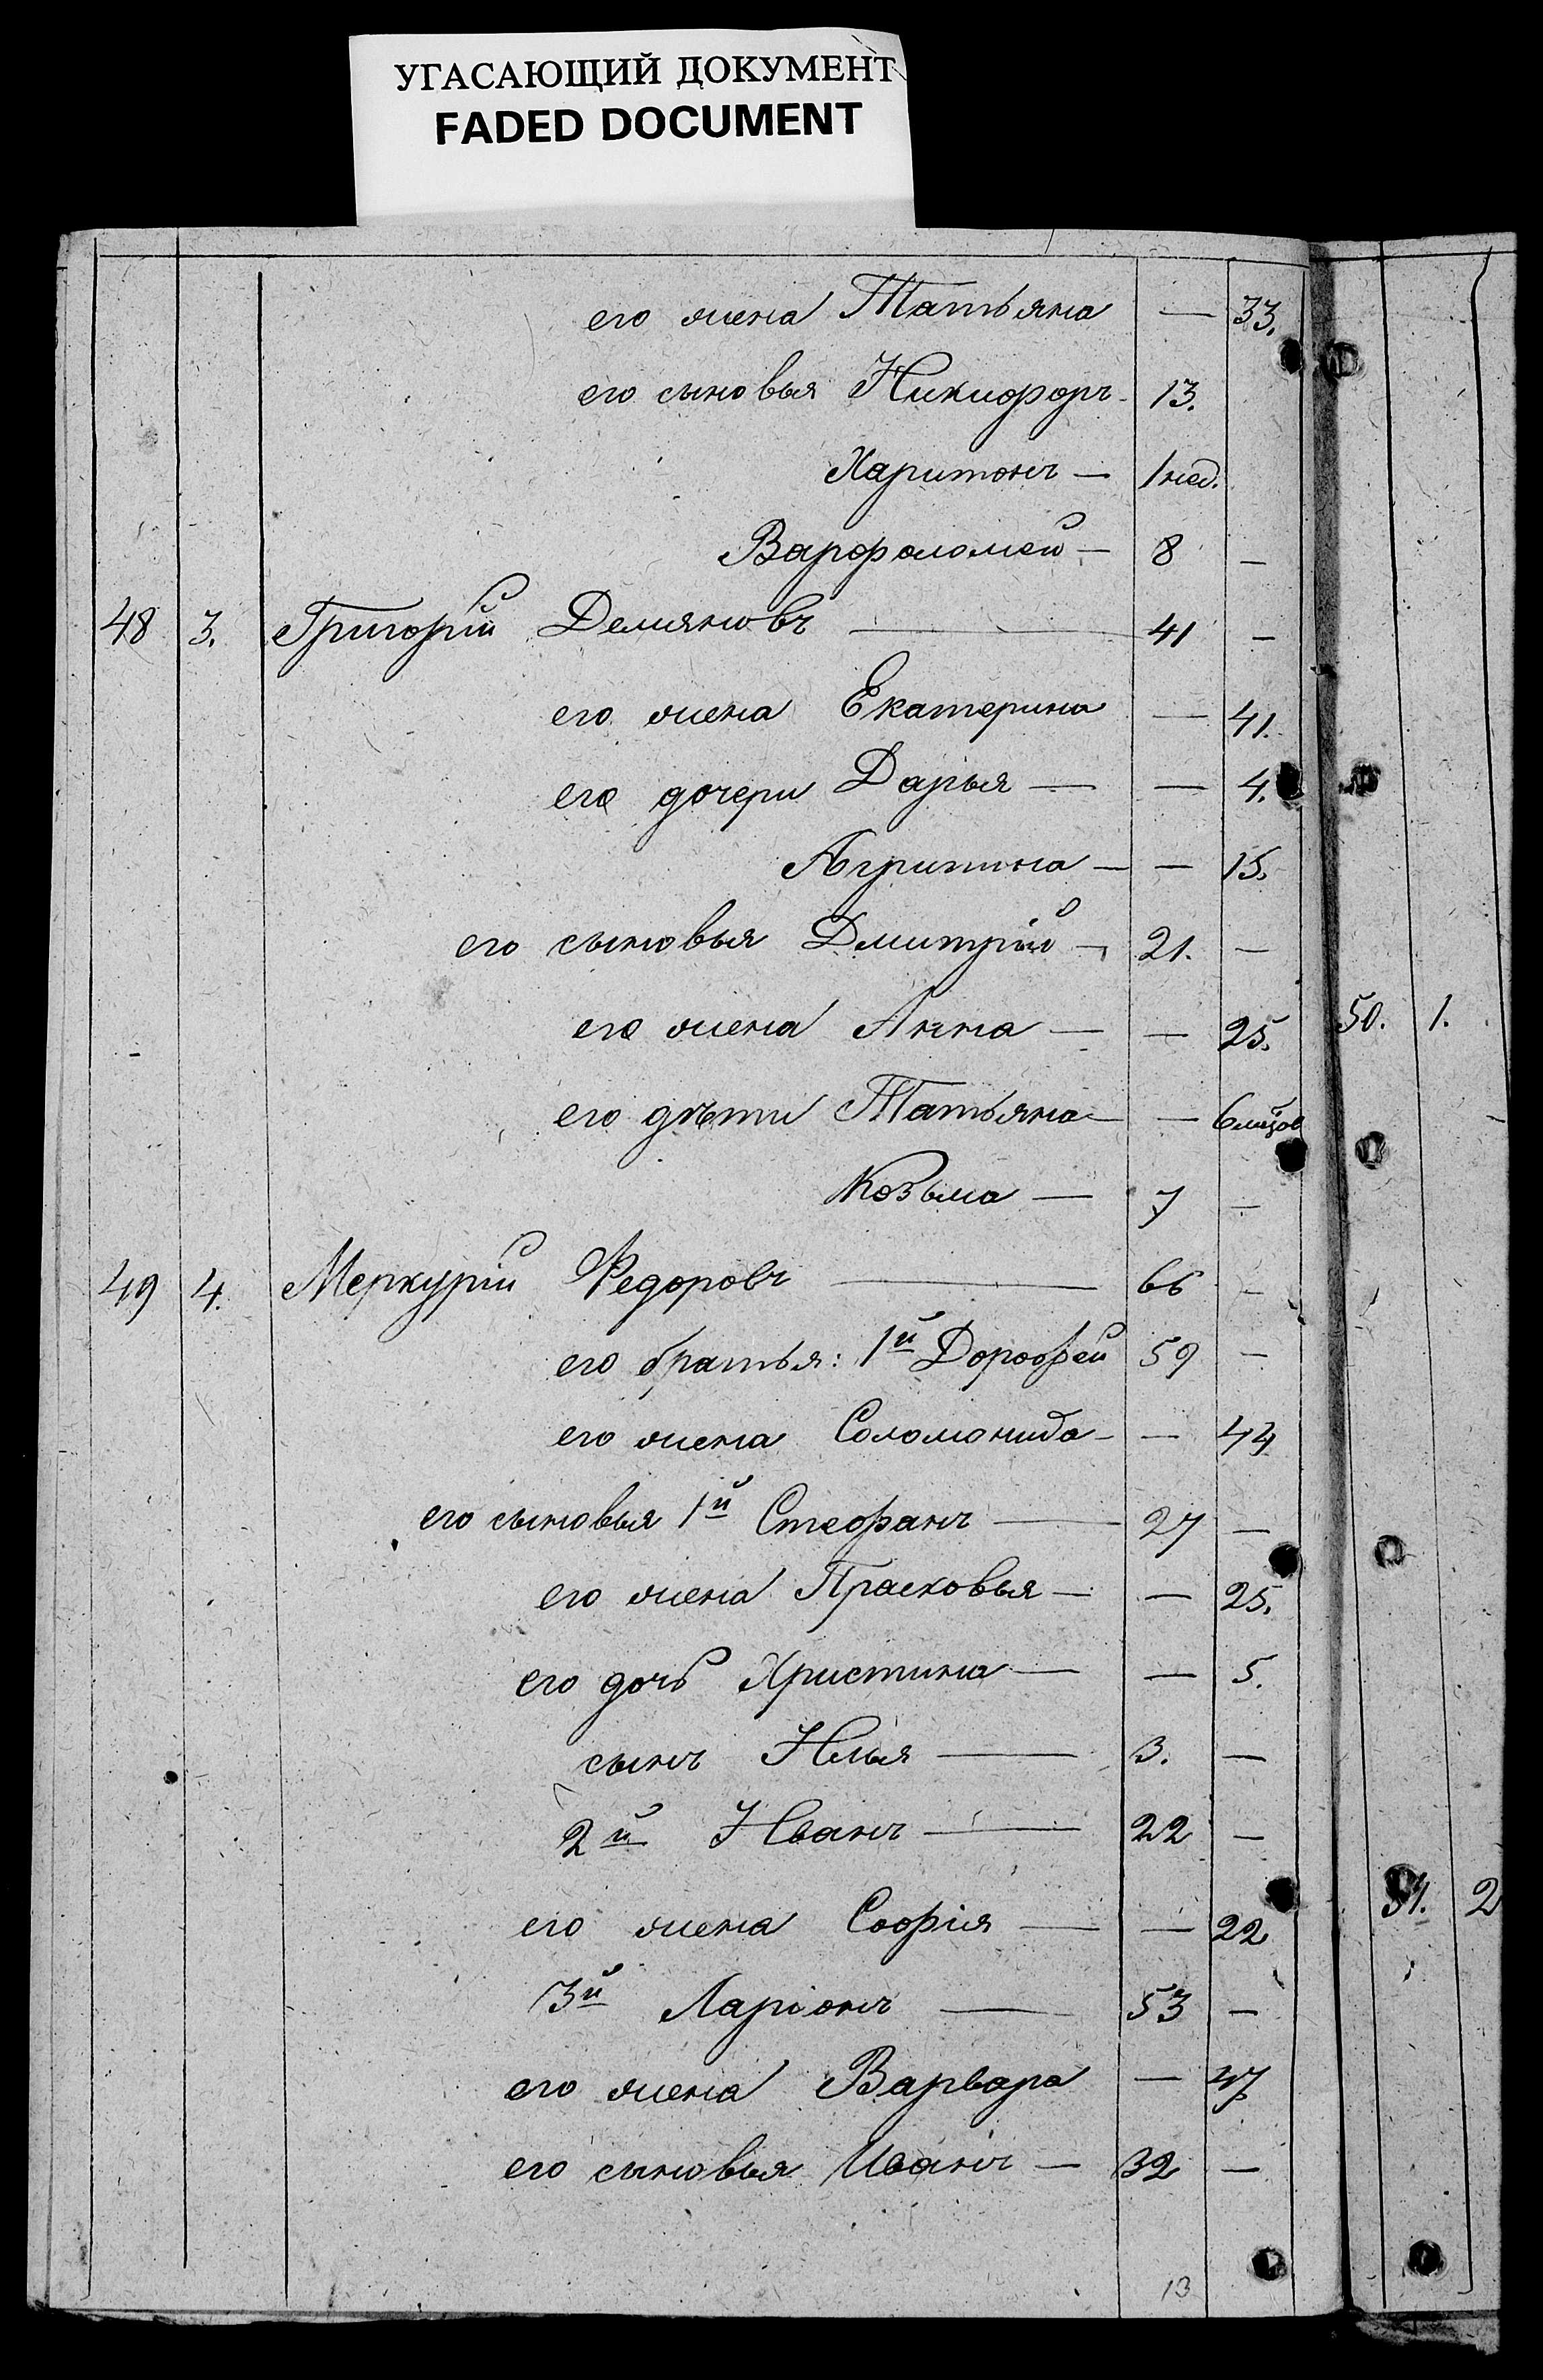 УГАСАЮЩИЙ ДОКУМЕНТ
FADED DOCUMENT
его жена Татьяна — 33.
его сыновья Никифоръ 13.
Харитонъ — 1 нед.
Варфоломей — 8 —
48 3. Григорій Демяновъ — 41 —
его жена Екатерина — 41.
его дочери Дарья — — 4.
Агрипина — — 15.
его сыновья Дмитрій — 21. —
его жена Анна — — 25.
его дѣти Татьяна — — 6 мцов
Козьма — 7 —
49 4. Меркурій Федоровъ — 66 —
его братья: 1й Дорофей 59 —
его жена Соломонида — — 44
его сыновья 1й Стефанъ — 27 —
его жена Прасковья — — 25.
его дочь Христина — — 5.
сынъ Илья — 3. —
2й Иванъ — 22 —
его жена Софія — — 22
3й Ларіонъ — 53 —
его жена Варвара — 47
его сыновья Иванъ — 32 —
13
50. 1.
51. 2